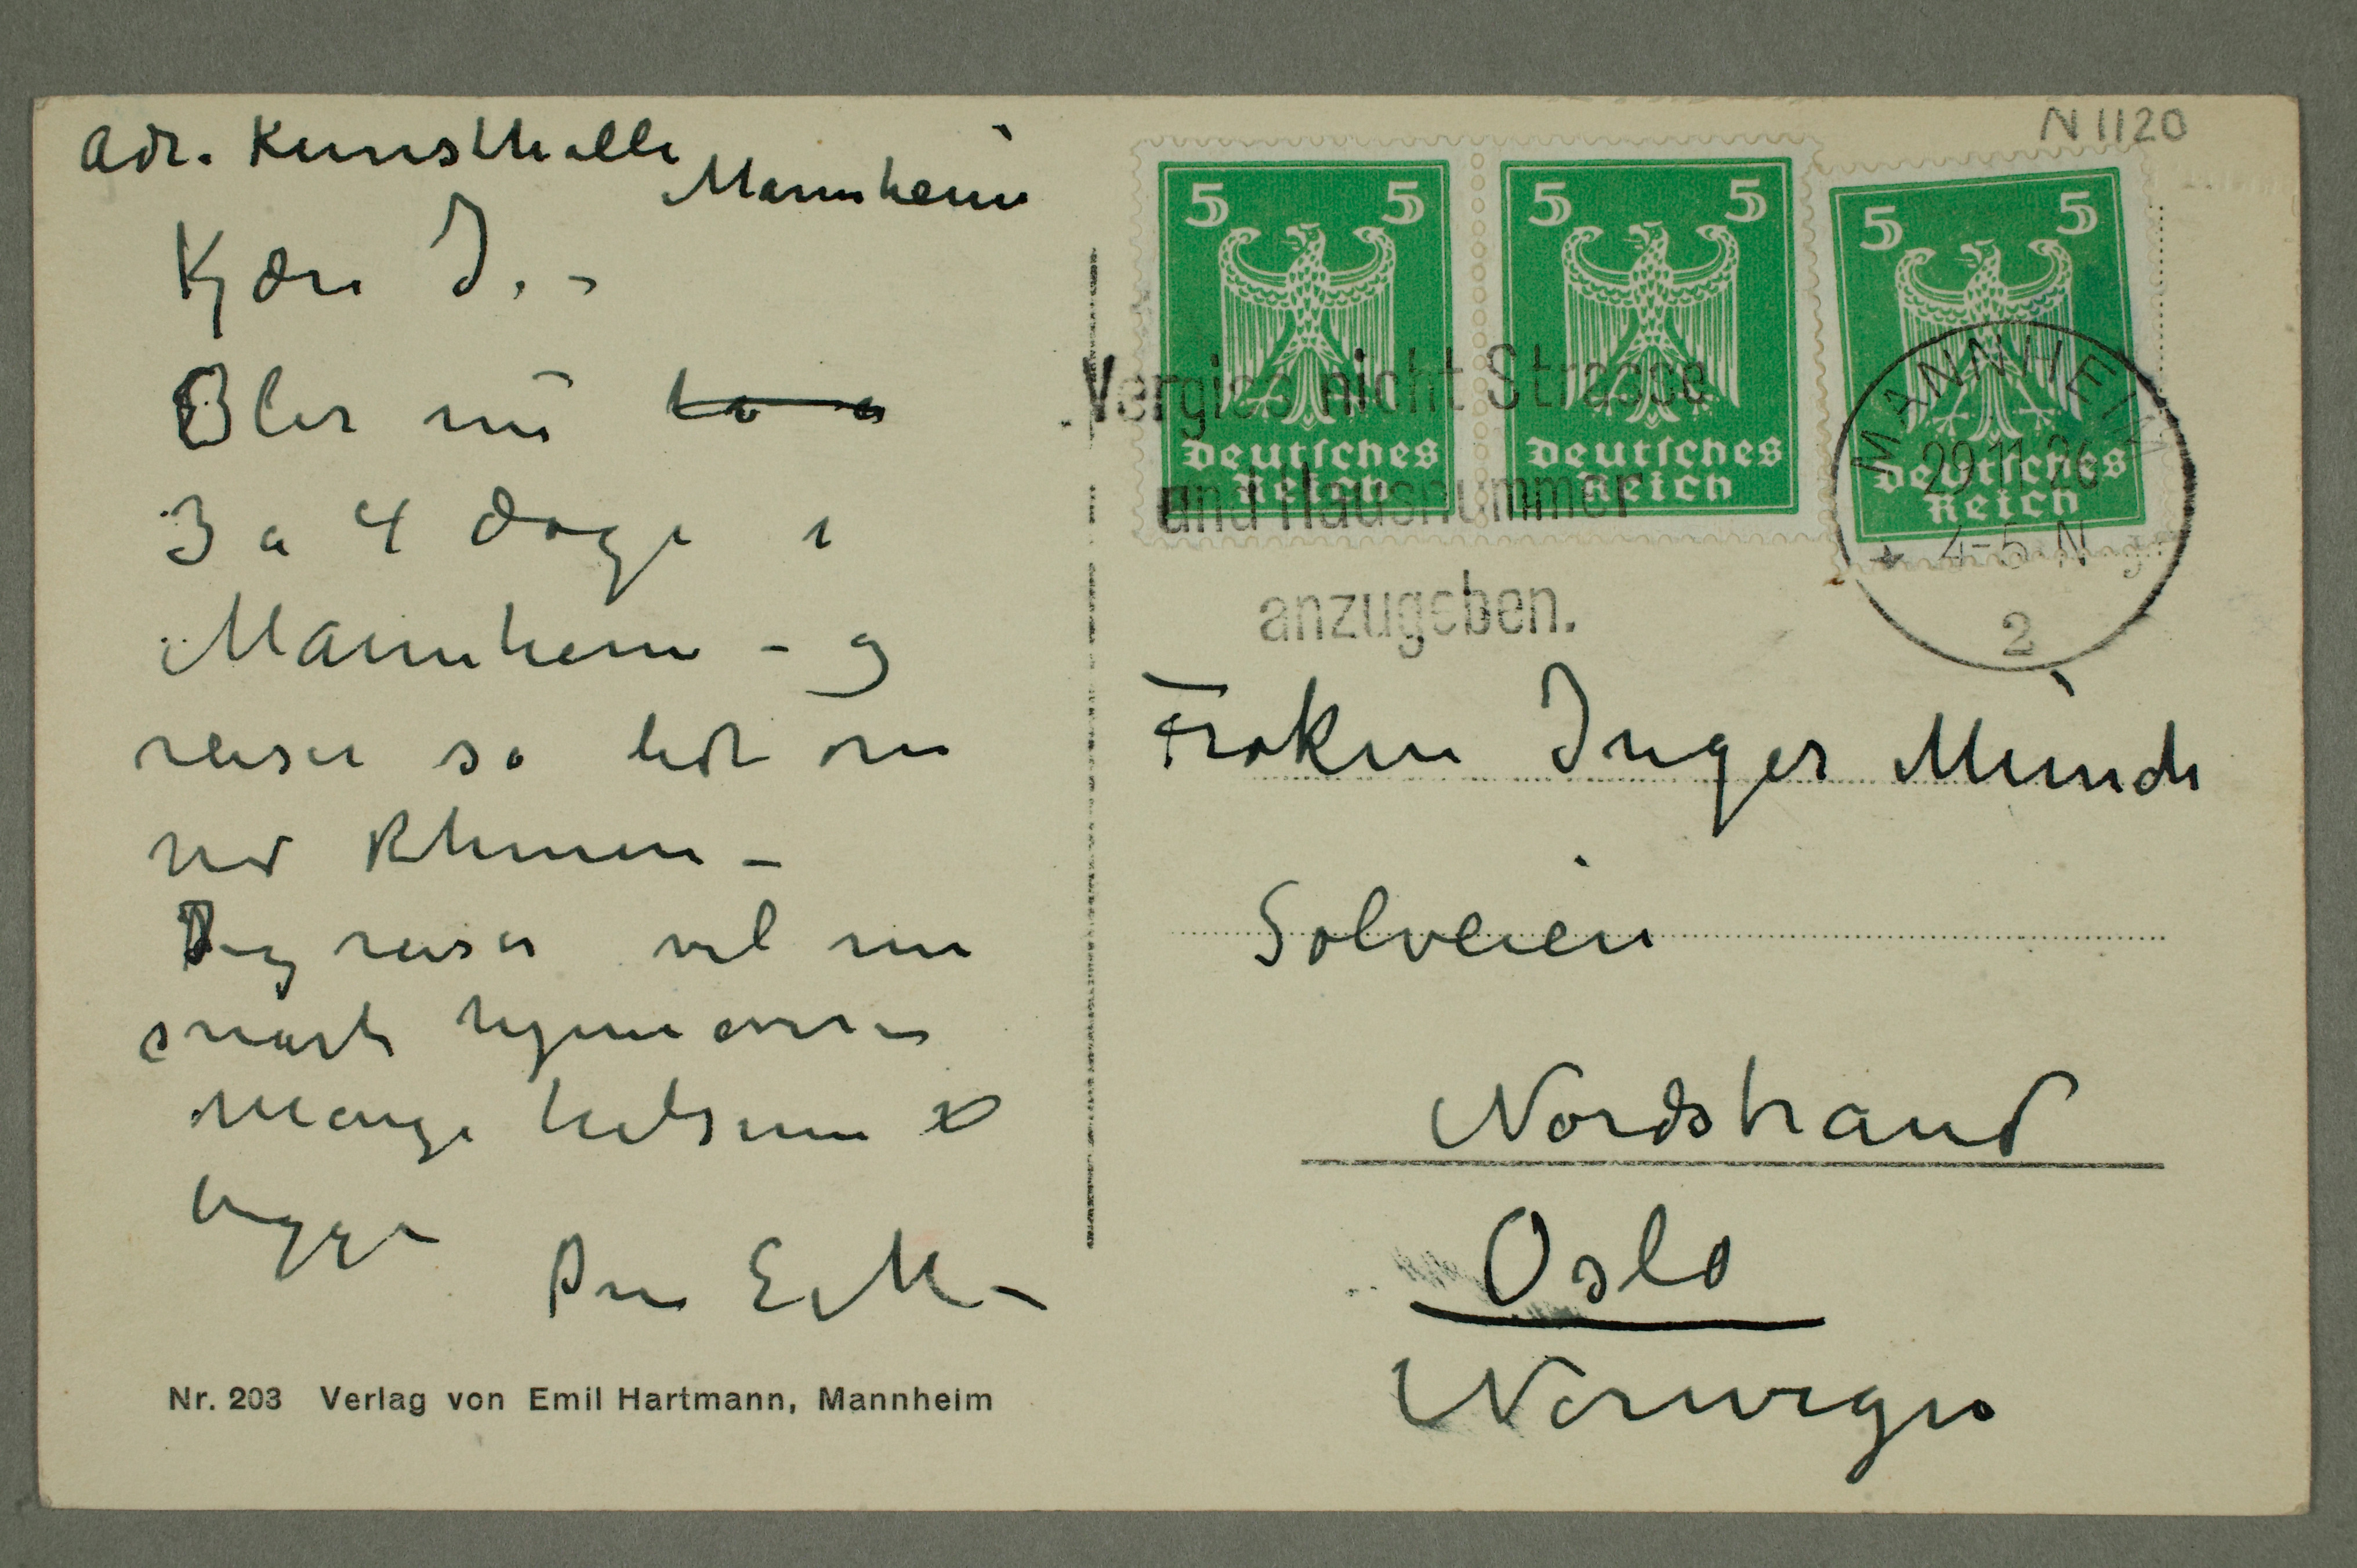 Adr. Kunsthalle
Mannheim
Kjære I. –
Bler nu to a
3 a 4 dage i
Mannheim – og
reiser så lidt om
ved Rhinen –
Jeg reiser vel nu
snart hjemover
Mange hilsener
begge
Din E. M –
Nr. 203 Verlag von Emil Hartmann, Mannheim
N 1120
5 5
Deutsches
Reich
5 5
Deutsches
Reich
5 5
Deutsches
Reich
Vergiss nicht Strasse
und Hausnummer
anzugeben.
MANNHEIM
29.11.26
4-5 N
2
Frøken Inger Munch
Solveien
Nordstrand
Oslo
Norwegen